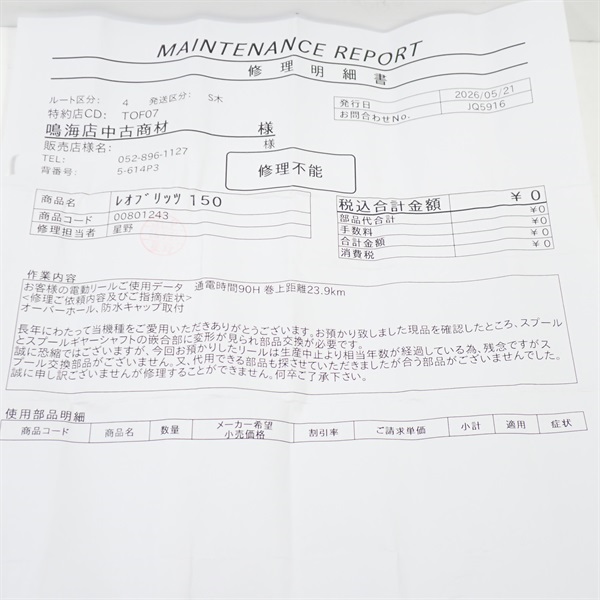 MAINTENANCE REPORT
修理明細書
ルート区分: 4 発送区分: S木
発行日 2026/05/21
特約店CD: TOF07
お問合わせNo. JQ5916
鳴海店中古商材 様
販売店様名: 様
TEL: 052-896-1127
背番号: 5-614P3
修理不能
商品名 ﾚｵﾌﾞﾘｯﾂ 150
商品コード 00801243
修理担当者 星野
税込合計金額 ¥0
部品代合計 ¥0
手数料 ¥0
合計金額 ¥0
消費税 ¥0
作業内容
お客様の電動リールご使用データ 通電時間90H 巻上距離23.9km
<修理ご依頼内容及びご指摘症状>
オーバーホール、防水キャップ取付
長年にわたって当機種をご愛用いただきありがとうございます。お預かり致しました現品を確認したところ、スプール
とスプールギヤーシャフトの嵌合部に変形が見られ部品交換が必要です。
誠に恐縮ではございますが、今回お預かりしたリールは生産中止より相当年数が経過している為、残念ですがス
プール交換部品がございません。又、代用できる部品も探させていただきましたが合う部品がございませんでした。
誠に申し訳ございませんが修理することができません。何卒ご了承下さい。
使用部品明細
商品コード 商品名 数量 メーカー希望小売価格 割引率 ご請求単価 小計 適用 症状